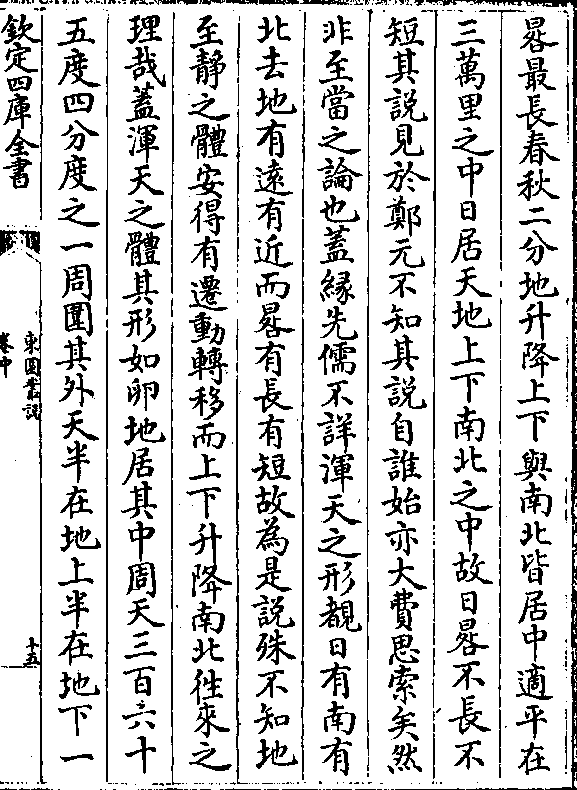 晷最長春秋二分地升降上下與南北皆居中適平在
三萬里之中日居天地上下南北之中故日晷不長不
短其說見於鄭元不知其說自誰始亦大費思索矣然
非至當之論也蓋緣先儒不詳渾天之形覩日有南有
北去地有遠有近而晷有長有短故為是說殊不知地
至靜之體安得有遷動轉移而上下升降南北徃來之
理哉蓋渾天之體其形如卵地居其中周天三百六十
五度四分度之一周圍其外天半在地上半在地下一
欽定四庫全書
東園叢說
卷中
十五